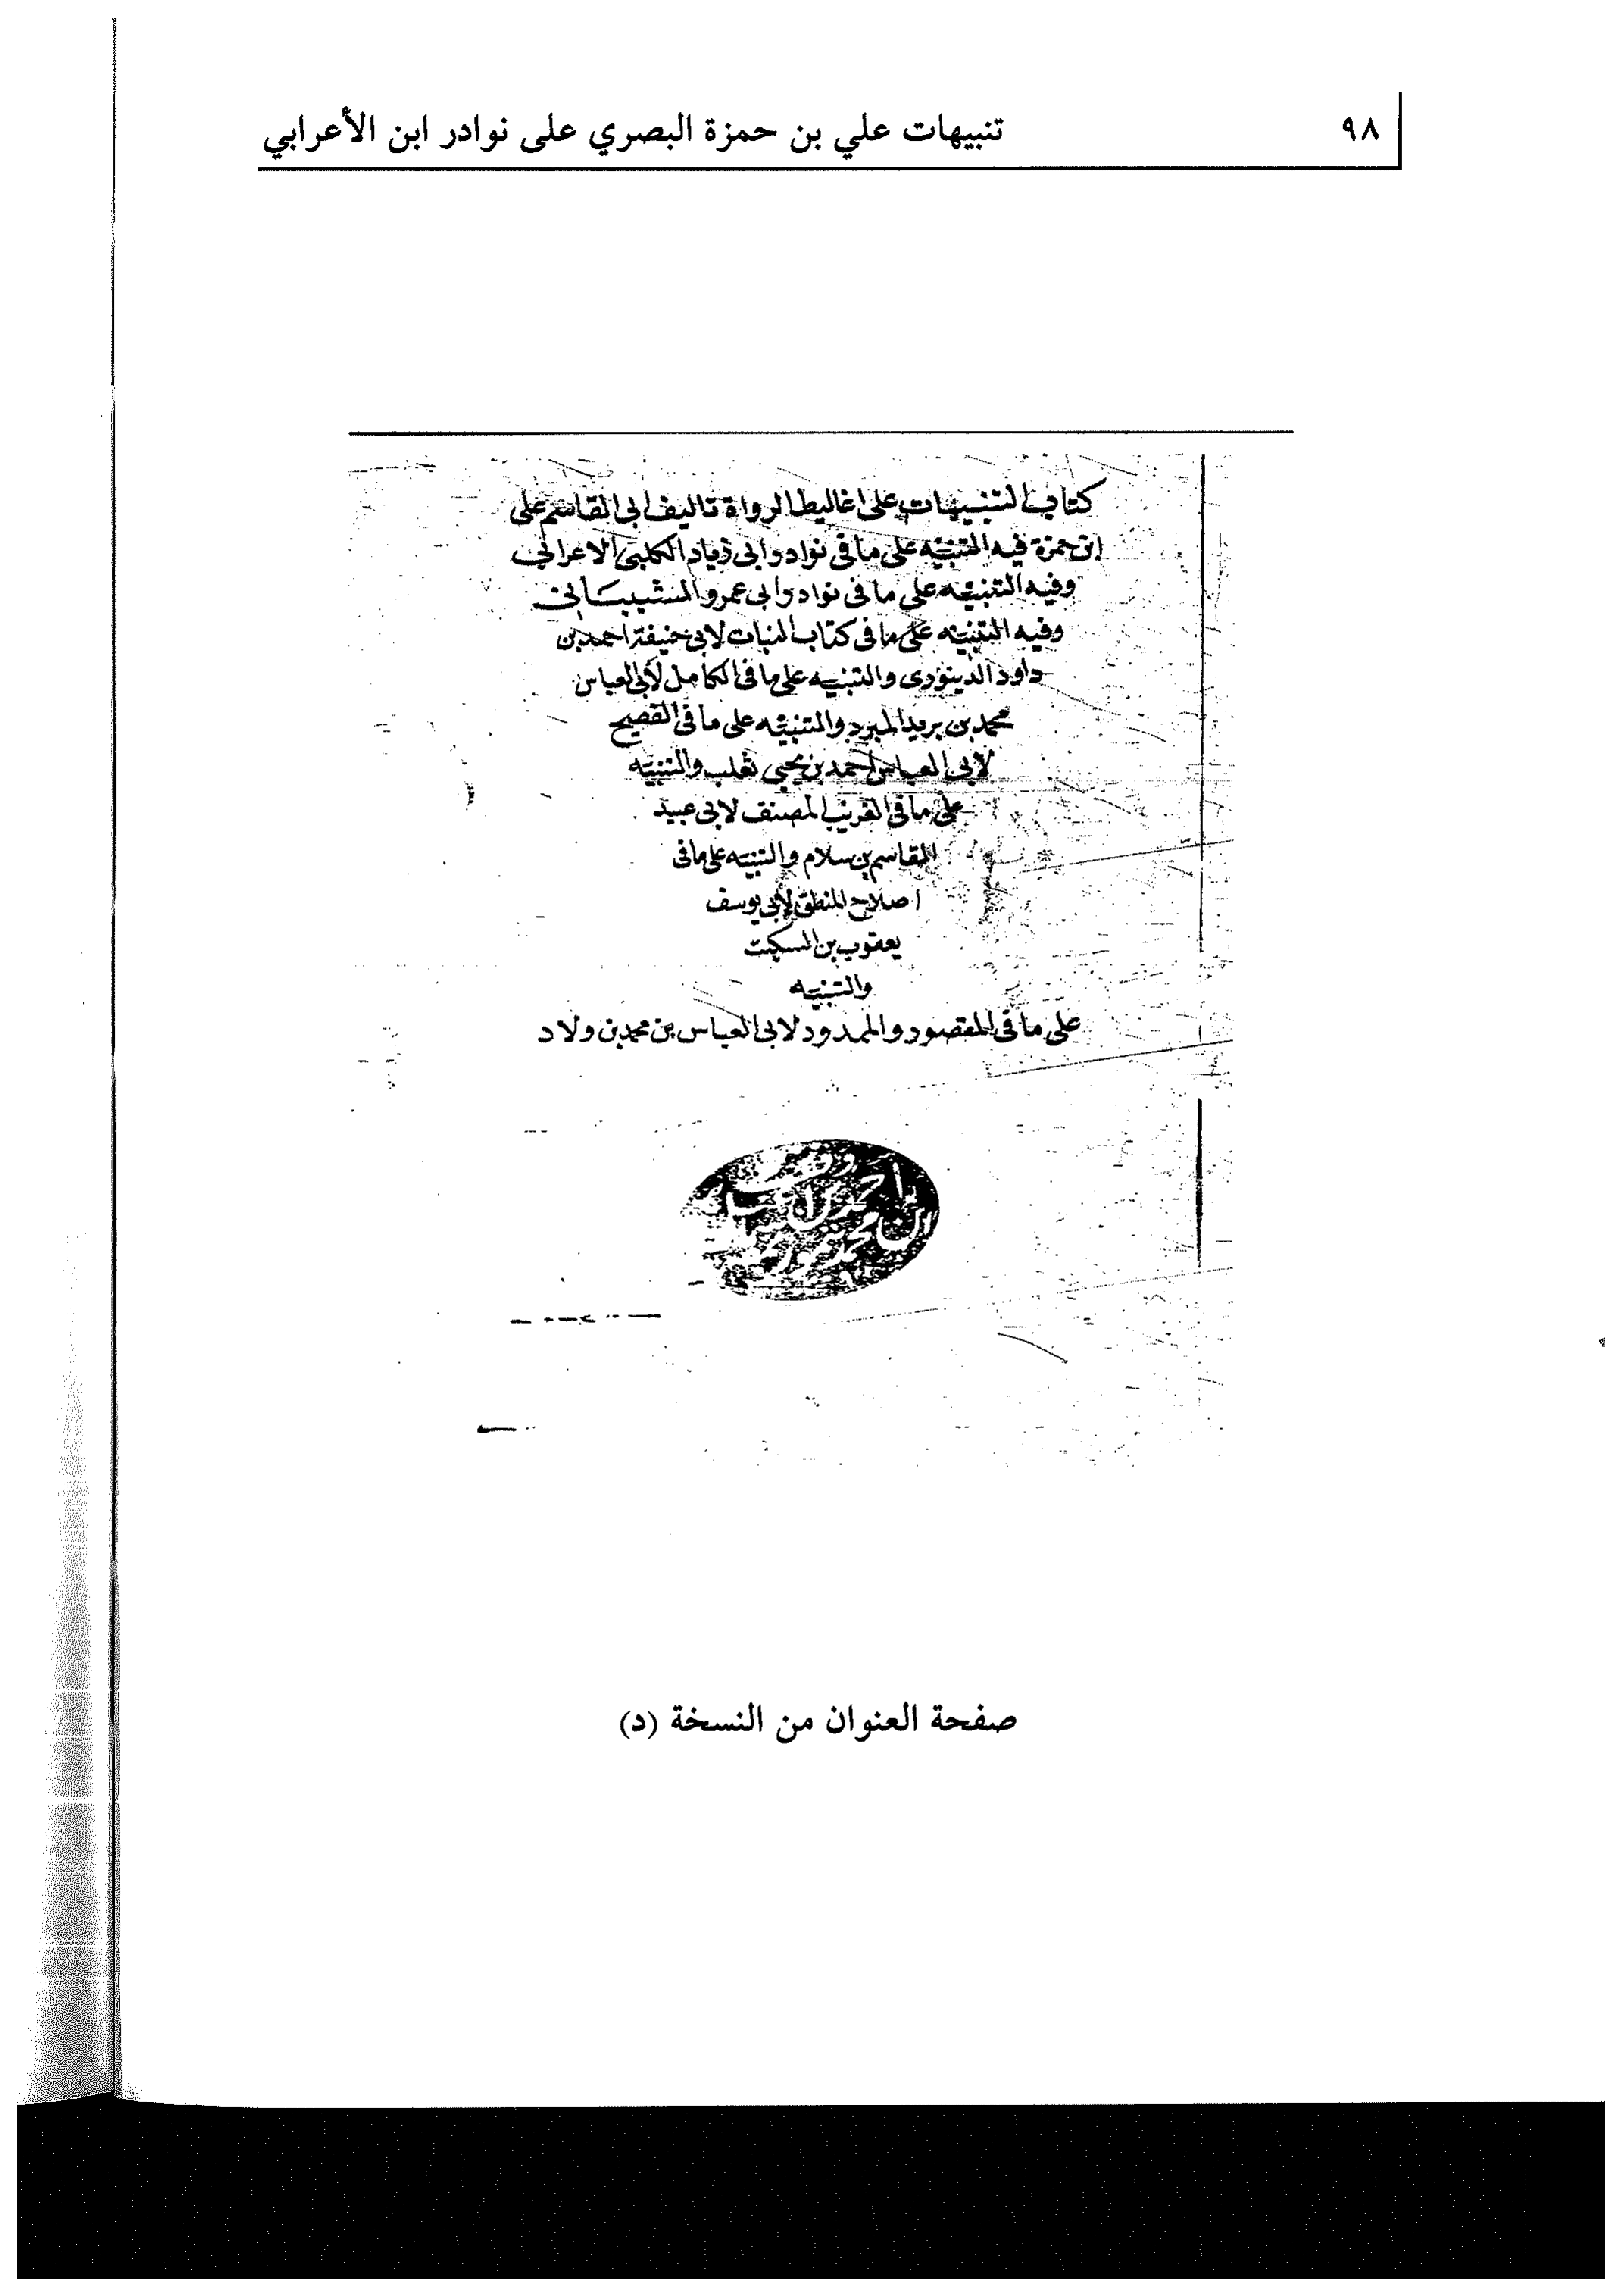 ٩٨
تنبيهات علي بن حمزة البصري على نوادر ابن الأعرابي
كتاب التنبيهات على اغاليط الرواة تاليف ابى القاسم على
ابن حمزة فيه التنبيه على ما فى نوادر ابى زياد الكلبى الاعرابى
وفيه التنبيه على ما فى نوادر ابى عمرو الشيبانى
وفيه التنبيه على ما فى كتاب النبات لابى حنيفة احمد بن
داود الدينورى والتنبيه على ما فى الكامل لأبى العباس
محمد بن يريد المبرد والتنبيه على ما فى الفصيح
لابى العباس احمد بن يحيى ثعلب والتنبيه
على ما فى الغريب المصنف لابى عبيد
القاسم بن سلام والتنبيه على ما فى
اصلاح المنطق لابى يوسف
يعقوب بن السكيت
والتنبيه
على ما فى المقصور والممدود لابى العباس بن محمد بن ولاد
صفحة العنوان من النسخة (د)